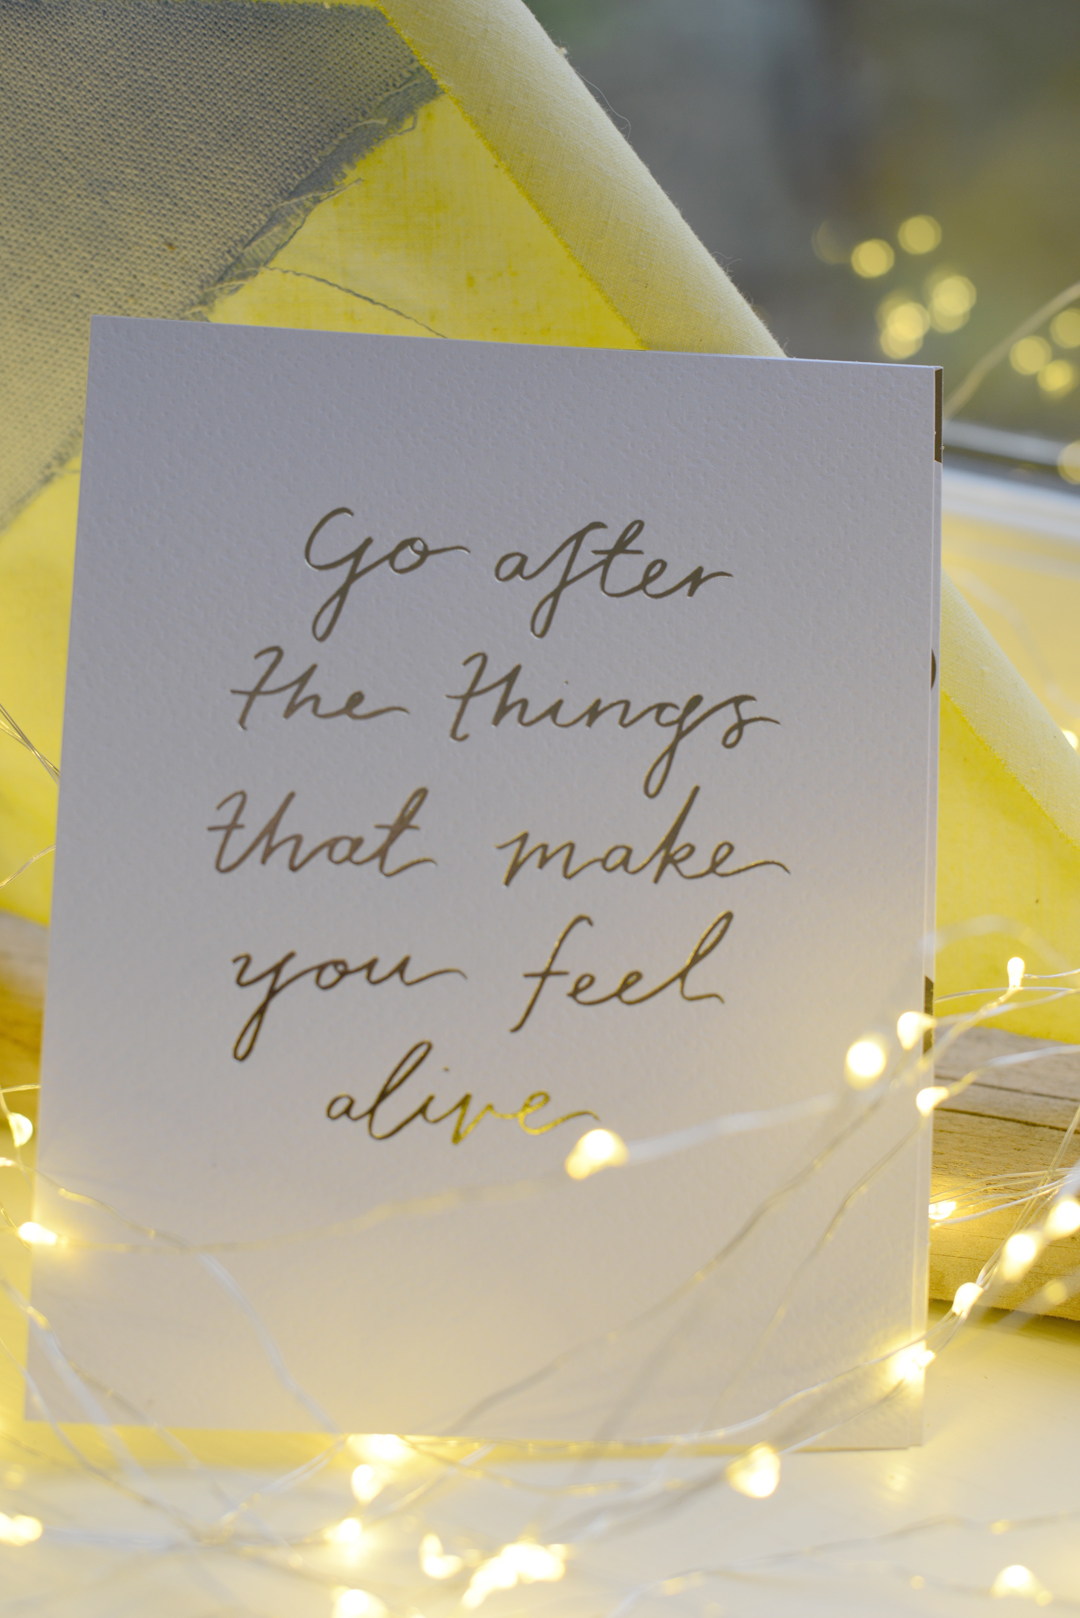 Go after
the things
that make
you feel
alive